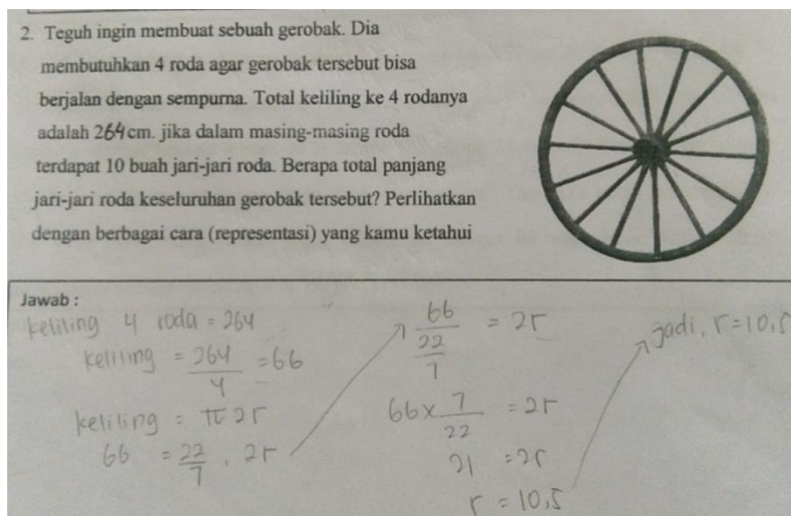 2. Teguh ingin membuat sebuah gerobak. Dia
membutuhkan 4 roda agar gerobak tersebut bisa
berjalan dengan sempurna. Total keliling ke 4 rodanya
adalah 264 cm. jika dalam masing-masing roda
terdapat 10 buah jari-jari roda. Berapa total panjang
jari-jari roda keseluruhan gerobak tersebut? Perlihatkan
dengan berbagai cara (representasi) yang kamu ketahui
Jawab :
keliling 4 roda = 264
keliling = 264/4 = 66
keliling = π 2r
66 = 22/7 . 2r
66/(22/7) = 2r
66 × 7/22 = 2r
21 = 2r
r = 10,5
jadi, r = 10,5